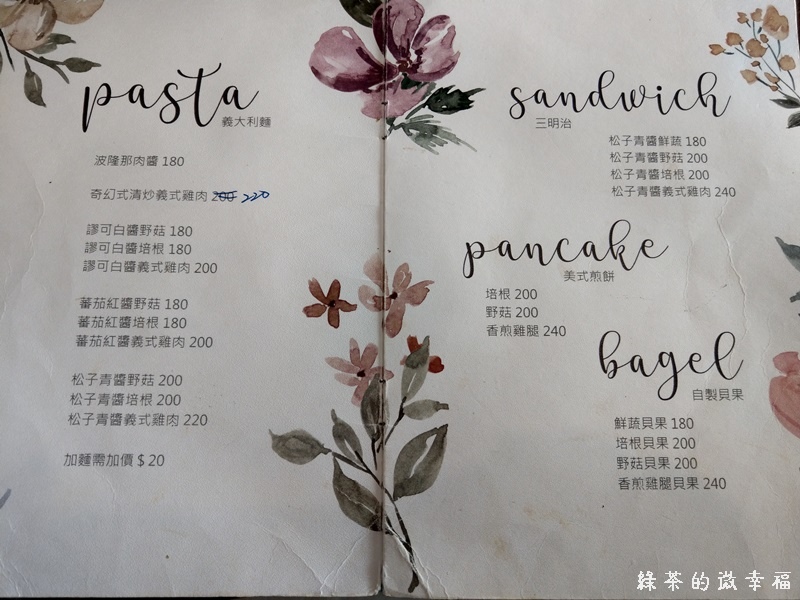 pasta
義大利麵
波隆那肉醬 180
奇幻式清炒義式雞肉 200 220
謬可白醬野菇 180
謬可白醬培根 180
謬可白醬義式雞肉 200
蕃茄紅醬野菇 180
蕃茄紅醬培根 180
蕃茄紅醬義式雞肉 200
松子青醬野菇 200
松子青醬培根 200
松子青醬義式雞肉 220
加麵需加價 $ 20
sandwich
三明治
松子青醬鮮蔬 180
松子青醬野菇 200
松子青醬培根 200
松子青醬義式雞肉 240
pancake
美式煎餅
培根 200
野菇 200
香煎雞腿 240
bagel
自製貝果
鮮蔬貝果 180
培根貝果 200
野菇貝果 200
香煎雞腿貝果 240
綠茶的微幸福